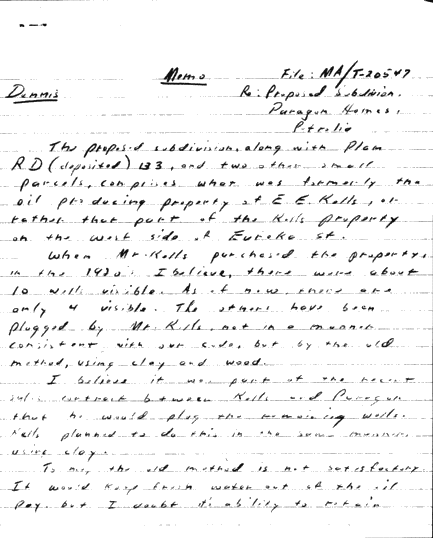 Memo
File: MA/T-20547
Dennis
Re: Proposed Subdivision,
Paragon Homes,
Petrolia
The proposed subdivision, along with Plan
RD (deposited) 133, and two other small
parcels, comprises what was formerly the
oil producing property of E.E. Kells, or
rather that part of the Kells property
on the west side of Eureka St.
When Mr. Kells purchased the property,
in the 1920's I believe, there were about
10 wells visible. As of now, there are
only 4 visible. The others have been
plugged by Mr. Kells, not in a manner
consistent with our code, but by the old
method, using clay and wood.
I believe it was part of the recent
sales contract between Kells and Paragon
that he would plug the remaining wells.
Kells planned to do this in the same manner,
using clay.
To me, the old method is not satisfactory.
It would keep fresh water out of the oil
pay, but I doubt its ability to retain